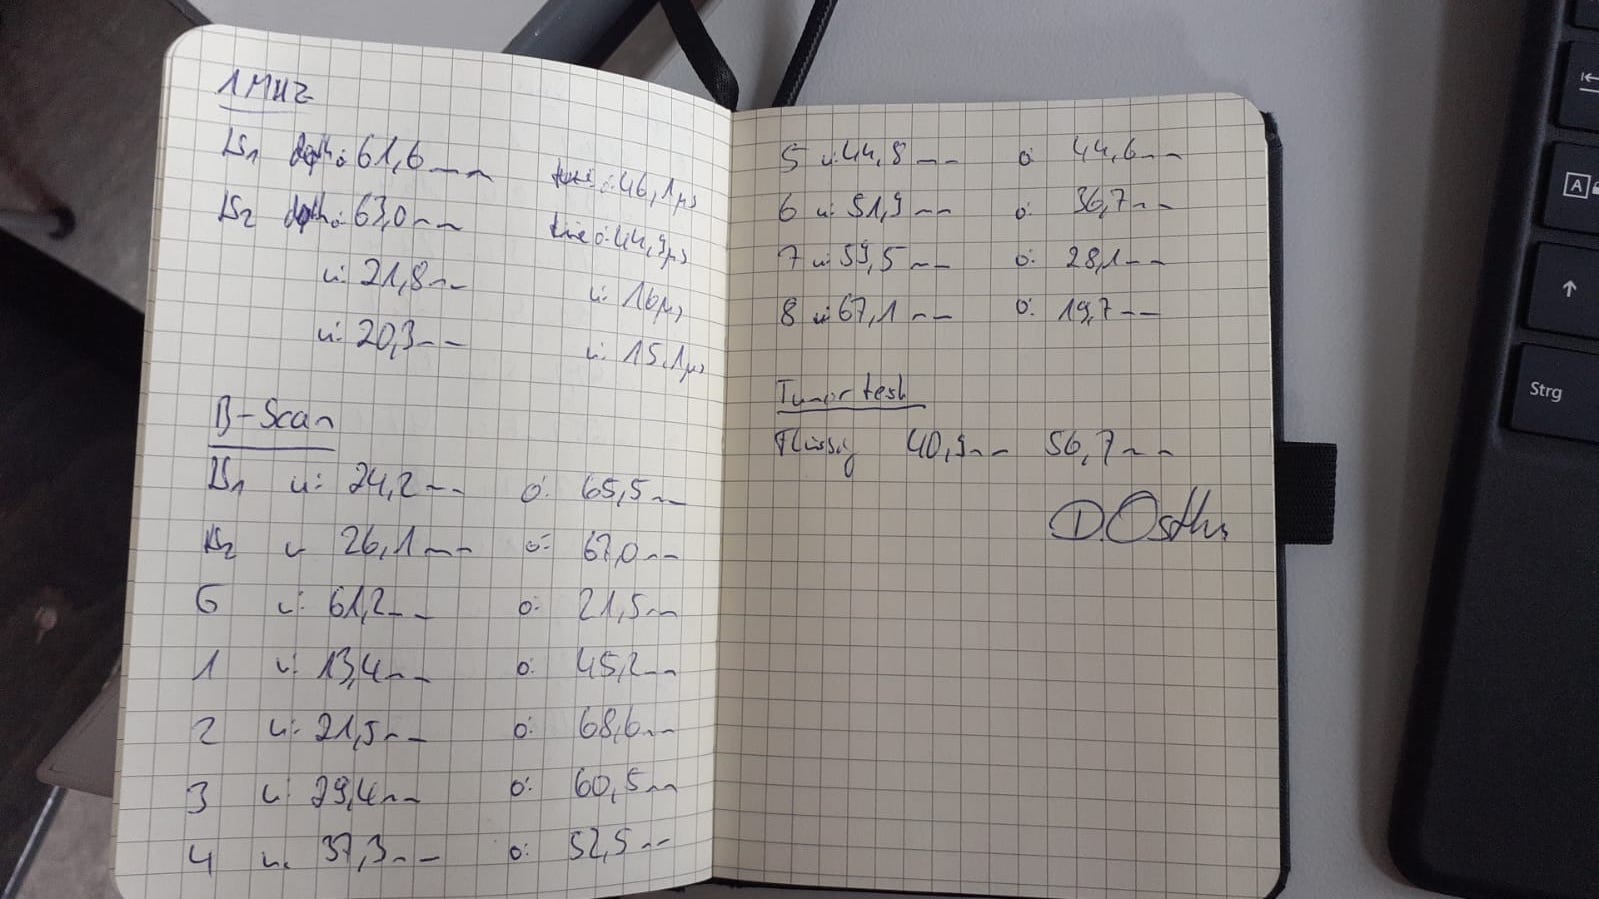 1 MHz
IS1 depth o: 61,6 mm time o: 46,1 µs
IS2 depth o: 63,0 mm time o: 44,9 µs
u: 21,8 mm u: 16 µs
u: 20,3 mm u: 15.1 µs
B-Scan
IS1 u: 24,2 mm o: 65,5 mm
IS2 u 26,1 mm o: 67,0 mm
G u: 61,2 mm o: 21,5 mm
1 u: 13,4 mm o: 45,2 mm
2 u: 21,5 mm o: 68,6 mm
3 u: 29,4 mm o: 60,5 mm
4 u: 37,3 mm o: 52,5 mm
5 u: 44,8 mm o: 44,6 mm
6 u: 51,9 mm o: 36,7 mm
7 u: 59,5 mm o: 28,1 mm
8 u: 67,1 mm o: 19,7 mm
Tumortest
Flüssig 40,9 mm 56,7 mm
A
Strg